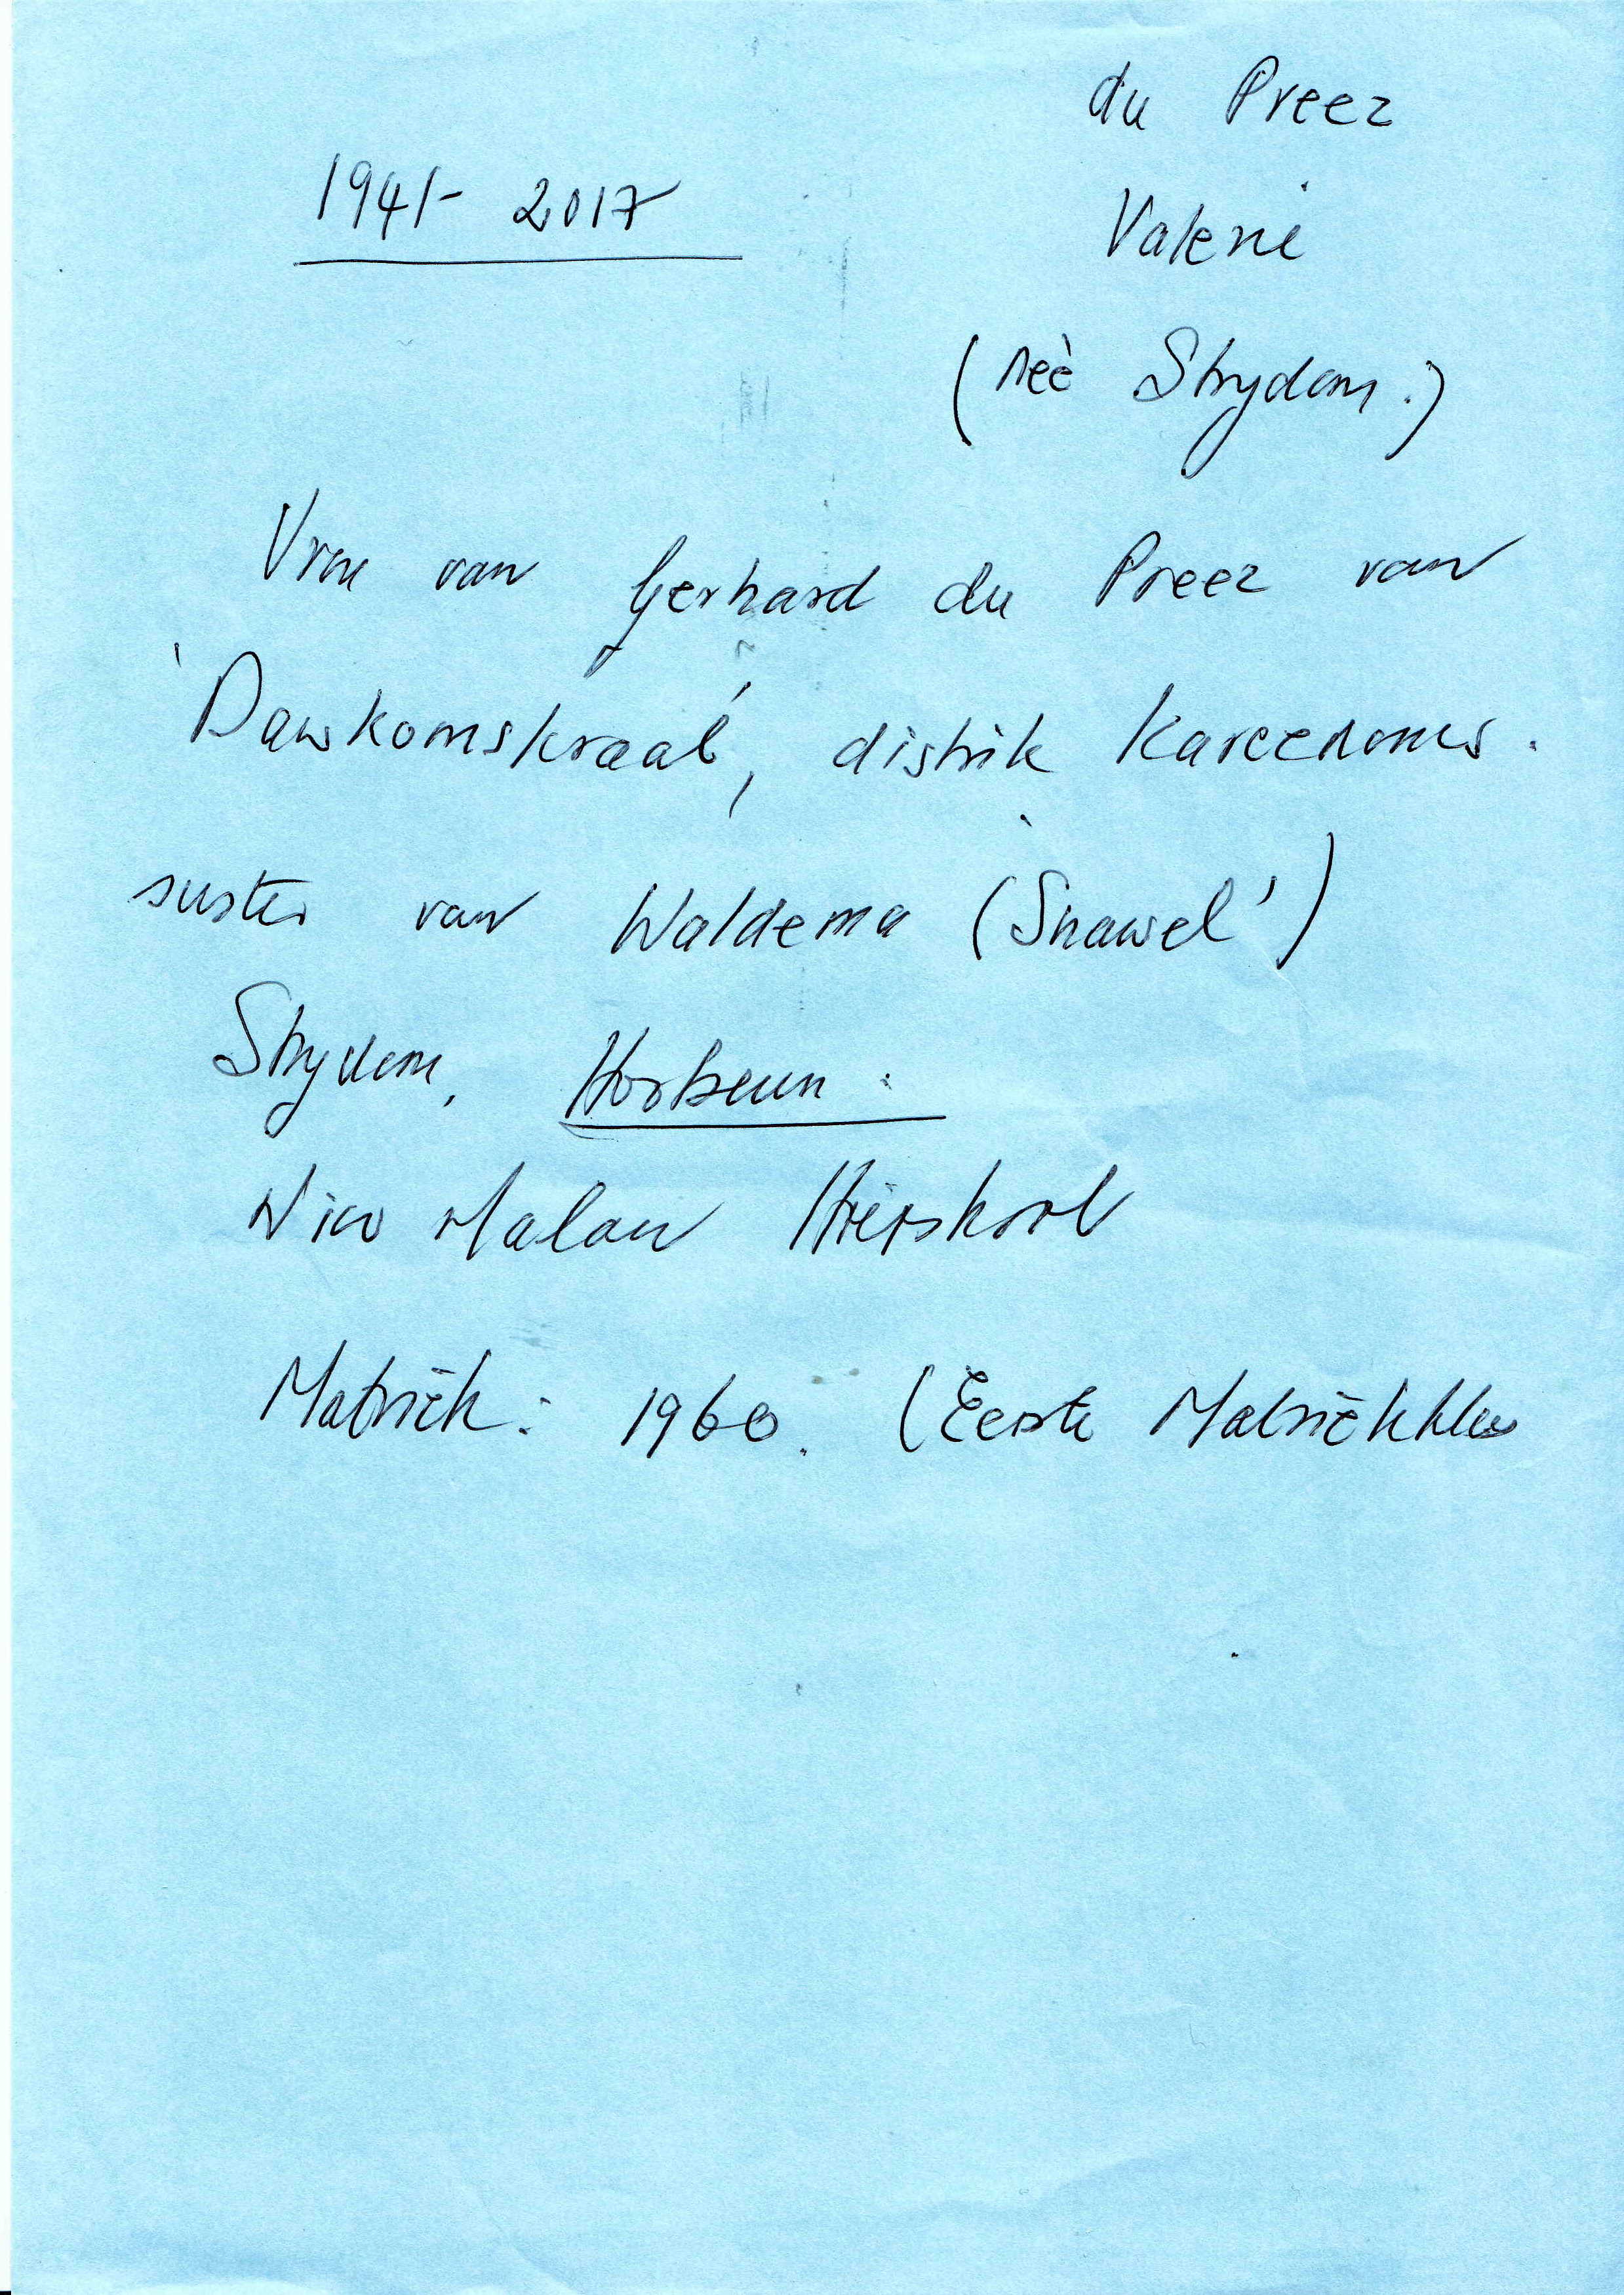 du Preez
1941- 2017
Valerie
(neè Strydom.)
Vrou van Gerhard du Preez van
'Dawkomskraal', distrik Kareedouws.
suster van Waldema (Snawel')
Strydom, Horseun.
Nico Malan Hoërskool
Matriek: 1960. (Eerste Matriekklas